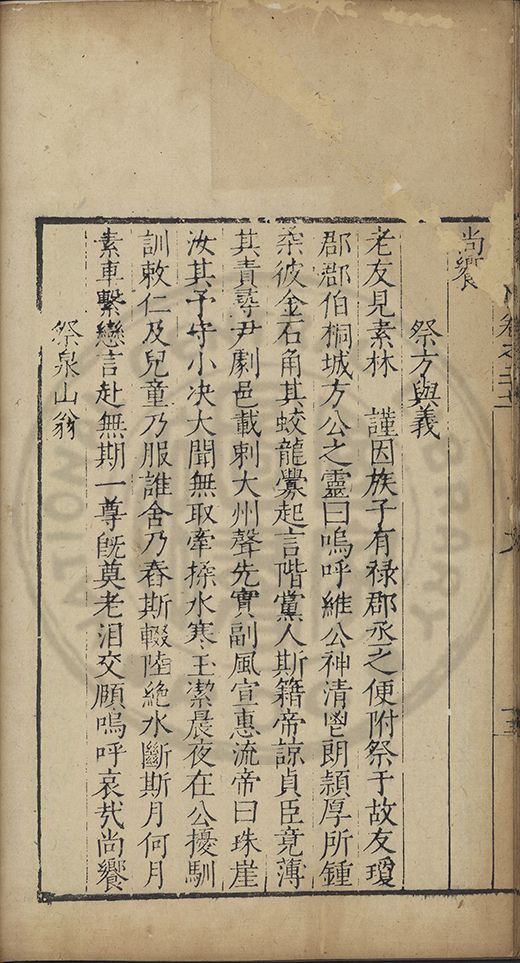 尚饗
祭方與義
老友見素林 謹因族子有祿郡丞之便附祭于故友瓊
郡郡伯桐城方公之靈曰嗚呼維公神清鬯朗穎厚所鍾
栗彼金石角其蛟龍釁起言階黨人斯籍帝諒貞臣竟薄
其責尋尹劇邑載刺大州聲先實副風宣惠流帝曰珠崖
汝其予守小決大聞無取牽掾水寒玉潔晨夜在公擾馴
訓敕仁及兒童乃服誰舍乃舂斯輟陸絶水斷斯月何月
素車繫戀言赴無期一尊旣奠老泪交頤嗚呼哀㢤尚饗
祭泉山翁